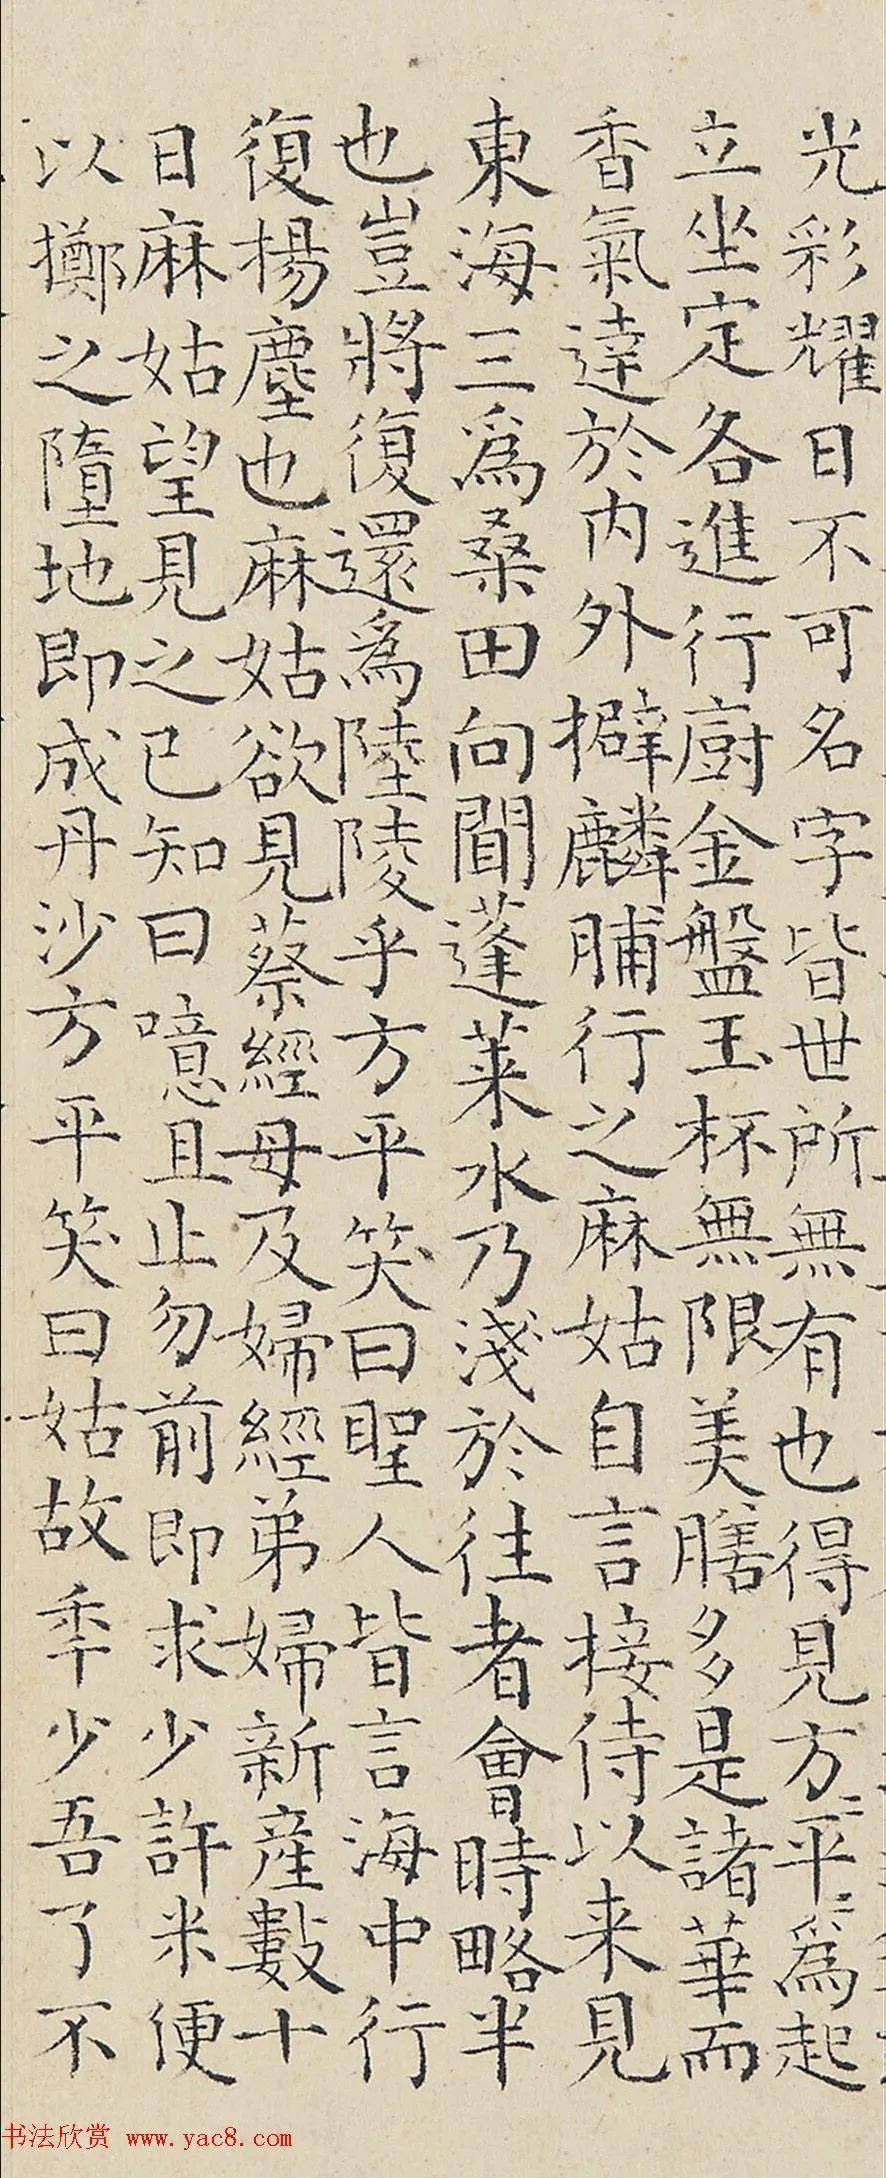 光彩耀日不可名字皆世所無有也得見方平〻爲起
立坐定各進行廚金盤玉杯無限美膳多是諸華而
香氣達於内外擗麟脯行之麻姑自言接侍以来見
東海三爲桑田向間蓬莱水乃淺於往者會時略半
也豈將復還爲陸陵乎方平笑曰聖人皆言海中行
復揚塵也麻姑欲見蔡經母及婦經弟婦新産數十
日麻姑望見之已知曰噫且止勿前即求少許米便
以擲之墮地即成丹沙方平笑曰姑故秊少吾了不
书法欣赏 www.yac8.com